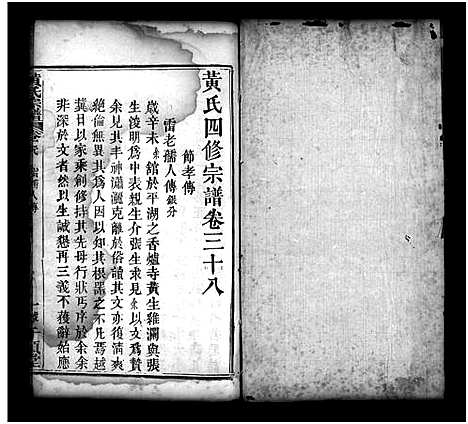 黃氏四修宗譜卷三十八
節孝傳
雷老孺人傳 銀分
歲辛未余館於平湖之香爐寺黃生雞瀾與張
生浚明為中表親生介張生來見余以文為贄
余見其丰神瀟灑克離於俗讀其文亦復清爽
絕倫無異其為人因叩其根器之不凡焉越
冀日以家乘創修持其先母行狀丏序於余余
非深於文者然以生誠懇再三義不獲辭始應